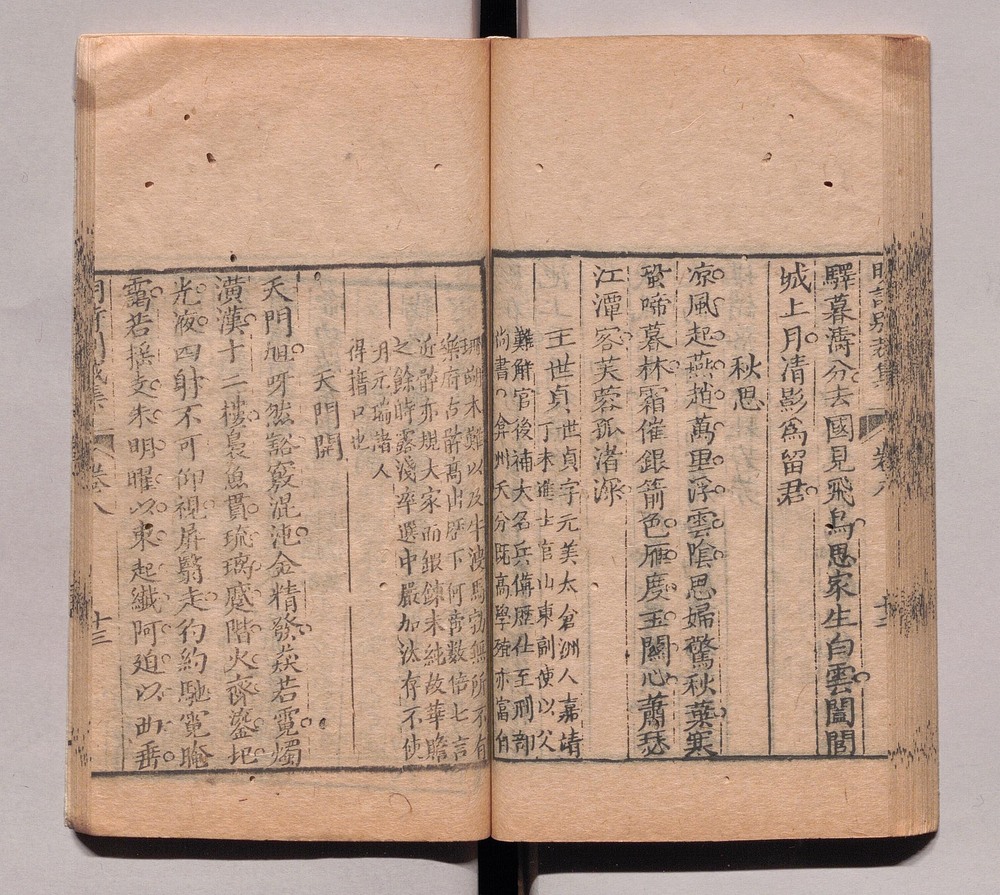 明詩別裁集 卷八 十三
驛暮濤分去國見飛鳥思家生白雲閶闔
城上月清影爲留君
秋思
凉風起燕趙萬里浮雲陰思婦驚秋葉寒
螀啼暮林霜催銀箭色雁度玉關心蕭瑟
江潭客芙蓉孤渚深
王世貞 世貞字元美太倉洲人嘉靖
丁未進士官山東副使以父
難解官後補大名兵備歴仕至刑部
尚書。弇州天分既高學殖亦富自
珊瑚木難以及牛溲馬勃無所不有
樂府古體高出歴下何啻數倍七言
近體亦規大家而鍜鍊未純故華贍
之餘時露淺率選中嚴加汰存不使
月元瑞諸人
得措口也
天門開
天門開呀然谿竅混沌金精發燄若電燭
潢漢十二樓裊魚貫琉璃蹙階火齊盗地
光夜四射不可仰視屏翳走彴約馳電晻
靄若揺支朱明曜以東起纖阿廹以西垂
卷八 十三